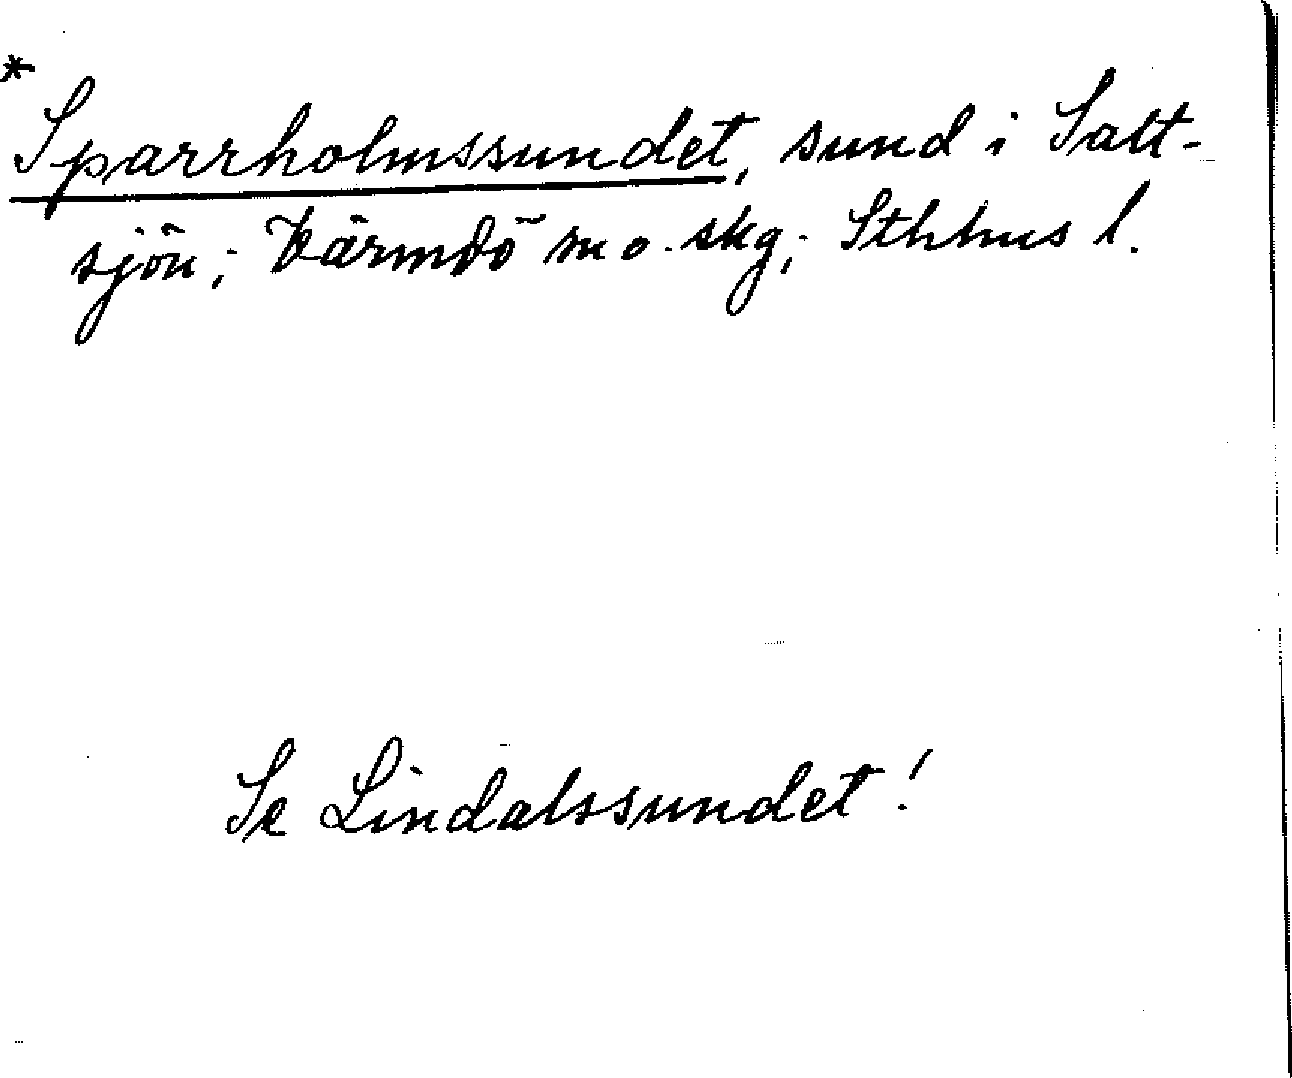 * Sparrholmssundet, sund i Salt-
sjön; Värmdö m o. skg; Sthlms l.
Se Lindalssundet!